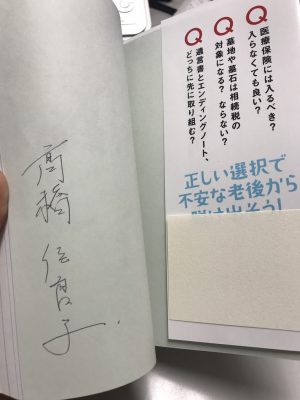 高橋
Q 医療保険には入るべき?
入らなくても良い?
Q 墓地や墓石は相続税の
対象になる? ならない?
Q 遺言書とエンディングノート、
どっちに先に取り組む?
正しい選択で
不安な老後から